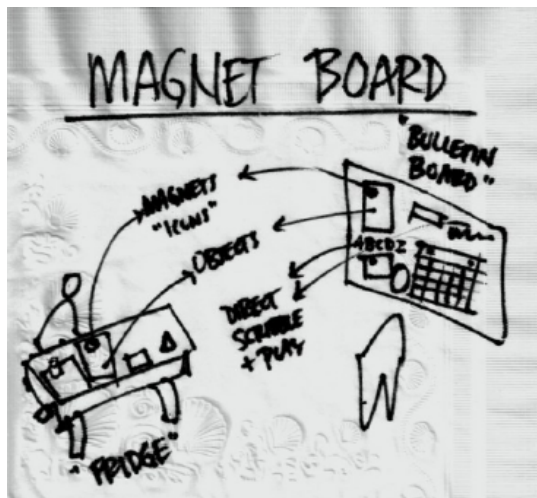 MAGNET BOARD
"BULLETIN
BOARD"
MAGNETS
"ICONS"
OBJECTS
ABCDZ
DIRECT
SCRIBBLE
+ PLAY
"FRIDGE"